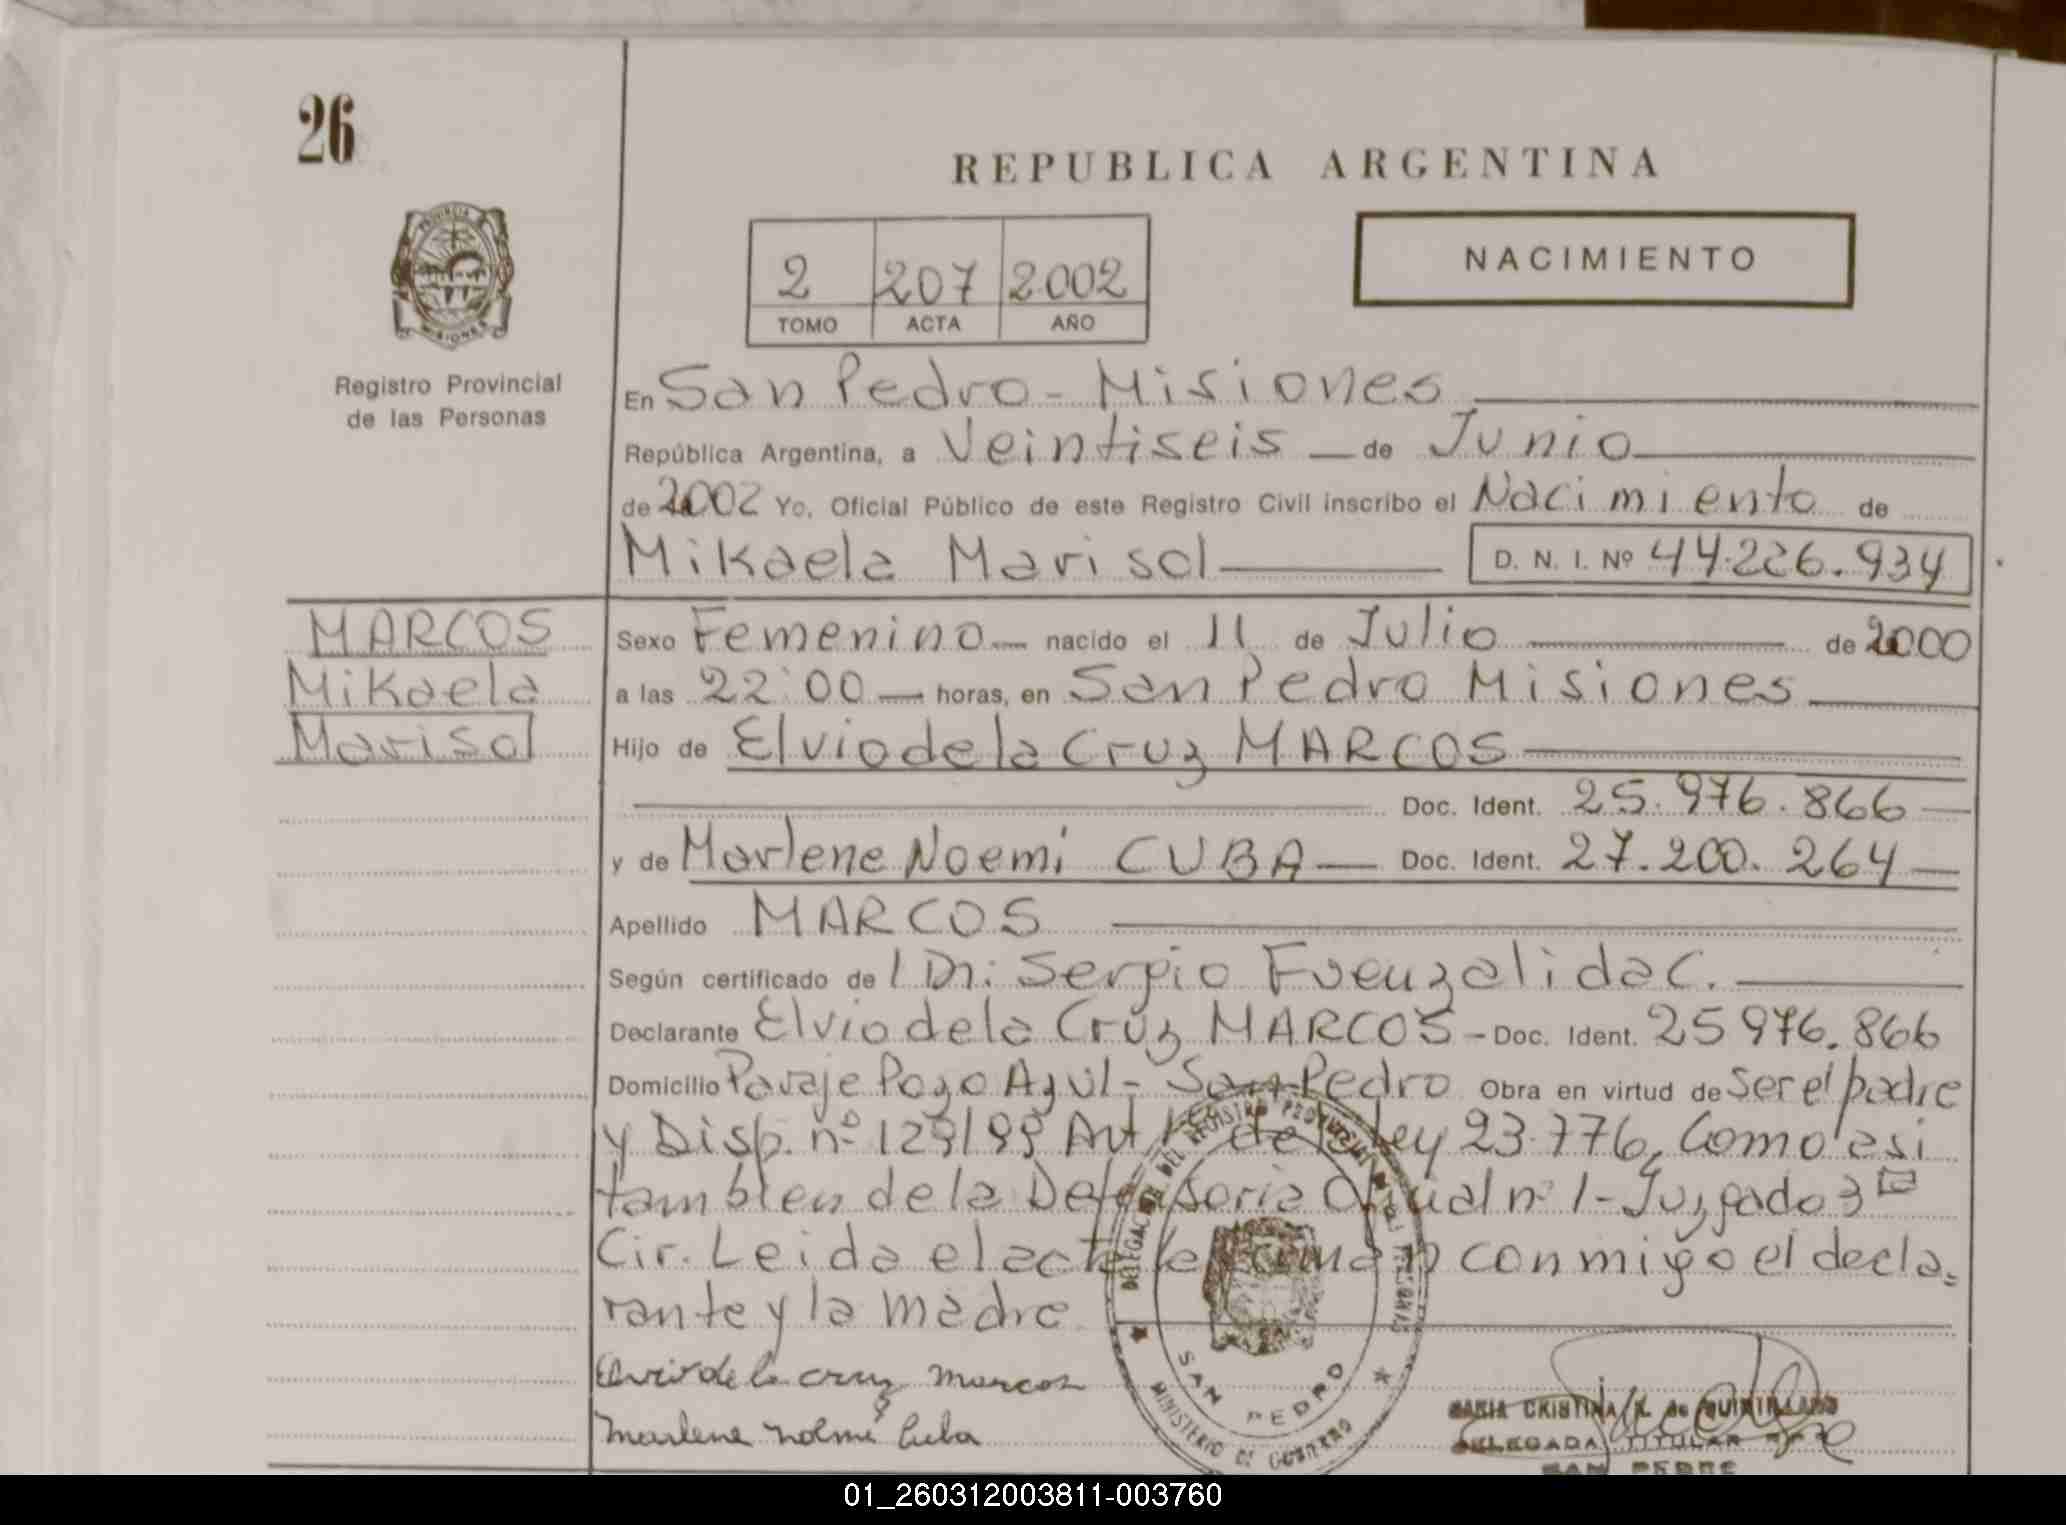 26
REPUBLICA ARGENTINA
PROVINCIA
MISIONES
Registro Provincial
de las Personas
2 207 2002
TOMO ACTA AÑO
NACIMIENTO
En San Pedro - Misiones
República Argentina, a Veintiseis de Junio
de 2002 Yo, Oficial Público de este Registro Civil inscribo el Nacimiento de
Mikaela Marisol D. N. I. Nº 44.226.934
MARCOS
Mikaela
Marisol
Sexo Femenino nacido el 11 de Julio de 2000
a las 22:00 horas, en San Pedro Misiones
Hijo de Elvio de la Cruz MARCOS
Doc. Ident. 25.976.866
y de Marlene Noemi CUBA Doc. Ident. 27.200.264
Apellido MARCOS
Según certificado de / Dr. Sergio Fuenzalida C.
Declarante Elvio de la Cruz MARCOS - Doc. Ident. 25976.866
Domicilio Paraje Pozo Azul - San Pedro Obra en virtud de Ser el padre
y Disp. nº 129/99 Art de Ley 23.776, Como asi
tambien de la Defensoria Oficial nº 1 - Juzgado 3
Cir. Leida el acta la firman conmigo el decla=
rante y la madre
Elvio de la cruz marcos
marlene noemi Cuba
DELEGACION DEL REGISTRO PROVINCIAL DE LAS PERSONAS
SAN PEDRO
MINISTERIO DE GOBIERNO
MARIA CRISTINA de
DELEGADA TITULAR
SAN PEDRO
01_260312003811-003760